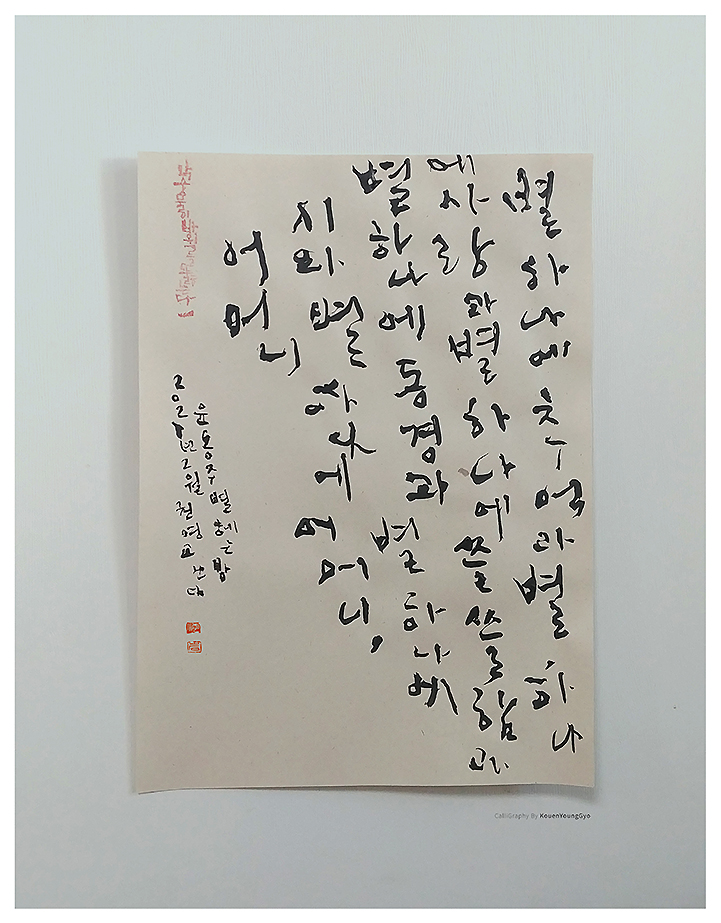 별 하나에 추억과 별 하나
에 사랑과 별 하나에 쓸쓸함과
별 하나에 동경과 별 하나에
시와 별 하나에 어머니,
어머니
윤동주 별 헤는 밤
2021년 2월 권영교
CalliGraphy By KouenYoungGyo